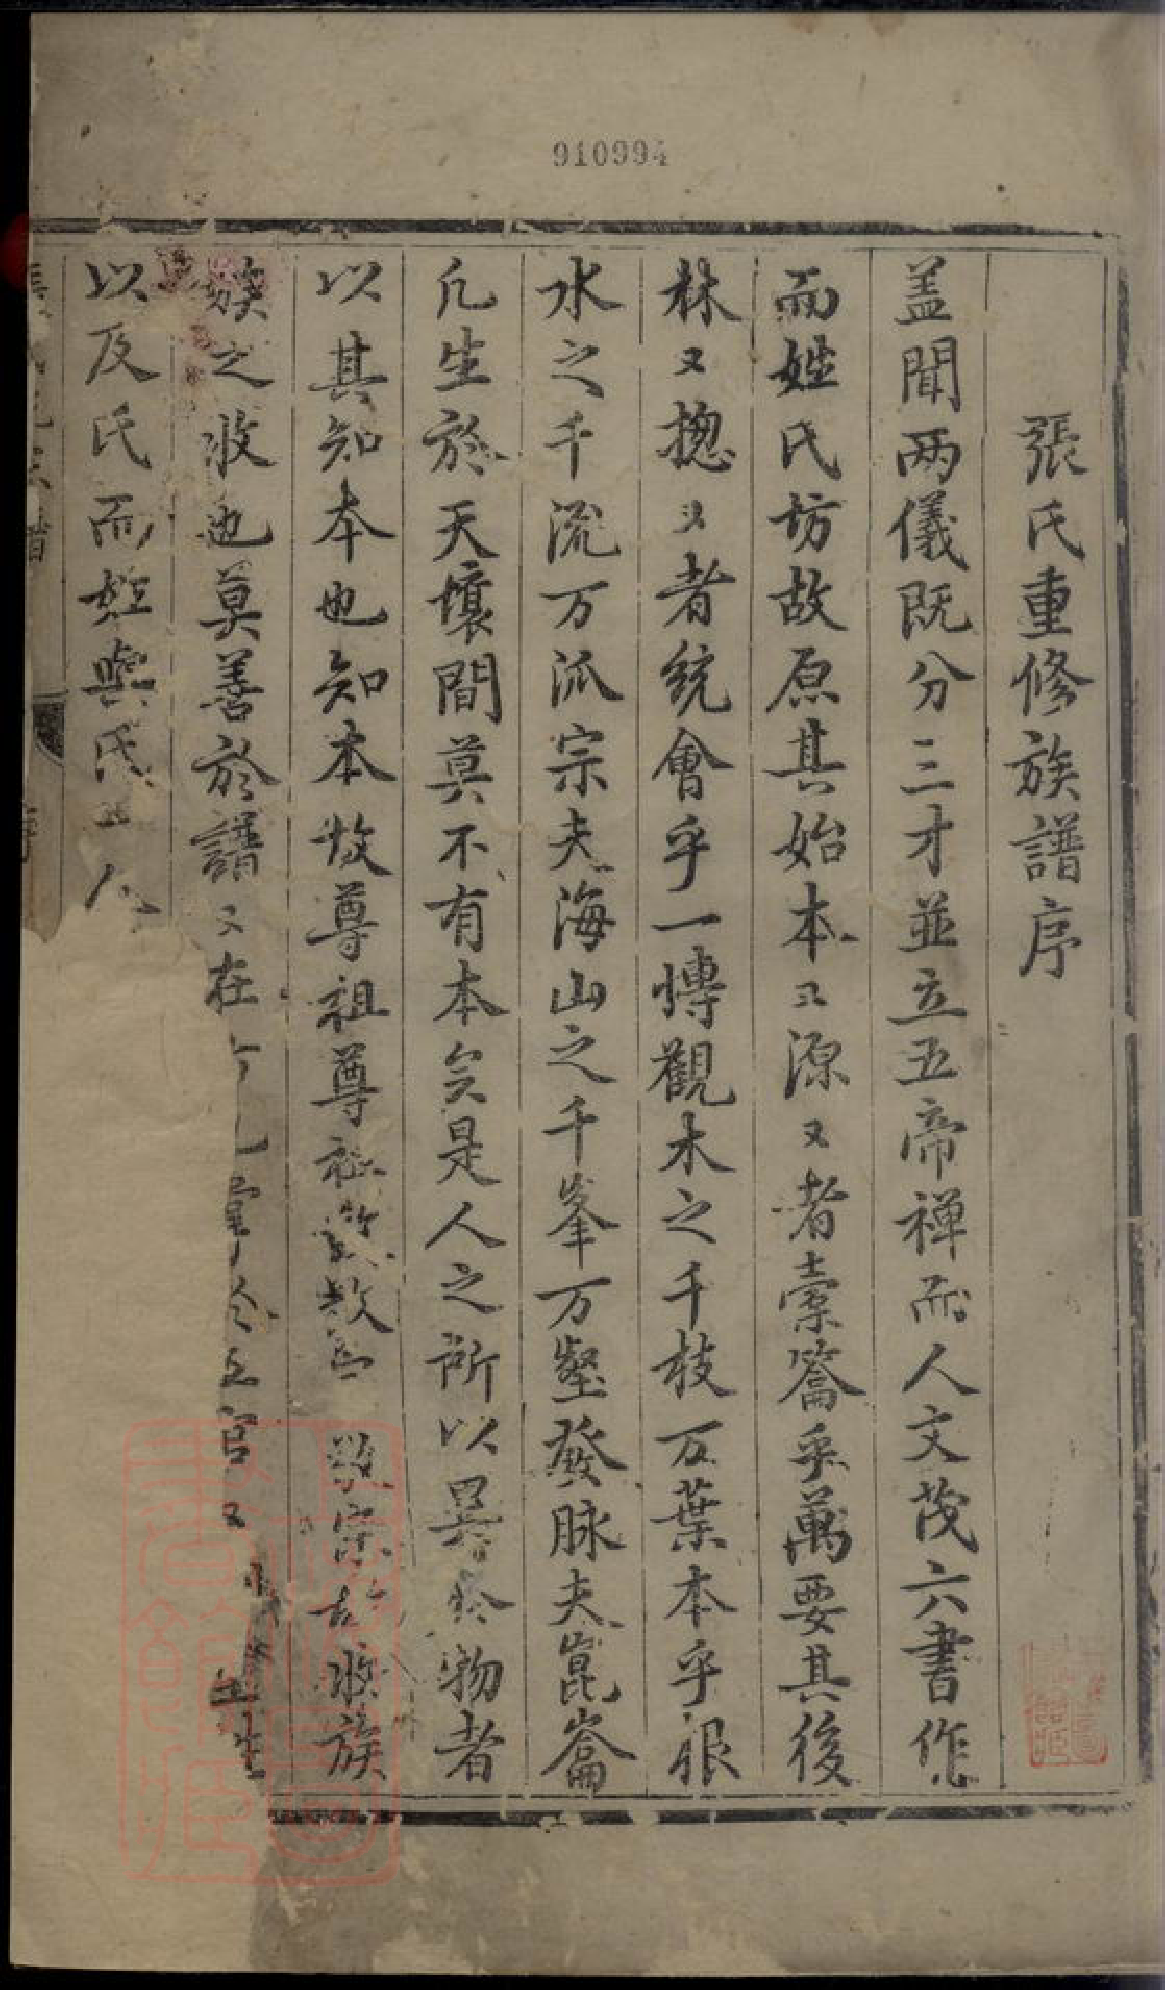 910994
張氏重修族譜序
盖聞两儀既分三才並立五帝禅而人文茂六書作
而姓氏坊故原其始本〻源〻者橐籥乎萬要其後
林〻揔〻者統會乎一慱觀木之千枝万葉本乎根
水之千流万派宗夫海山之千峯万壑發脉夫崑崙
凢生於天壤間莫不有本矣是人之所以異於物者
以其知本也知本故尊祖尊祖故敬宗故收族
族之收也莫善於譜〻在官〻生
以及氏而姓與氏人